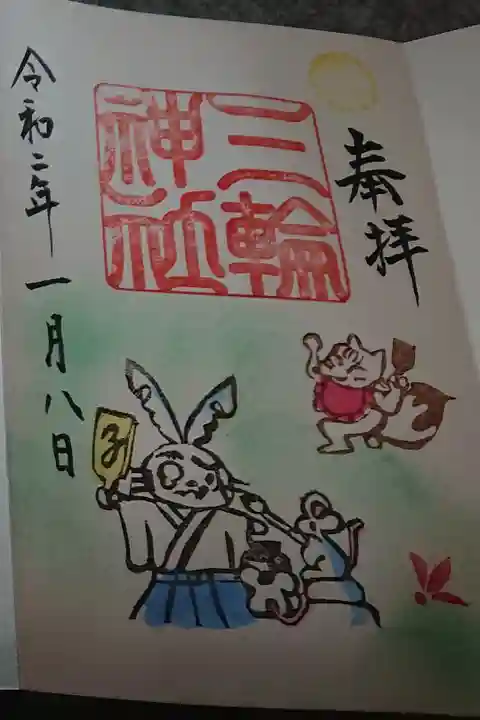 奉拝
三輪
神社
令和二年一月八日
子